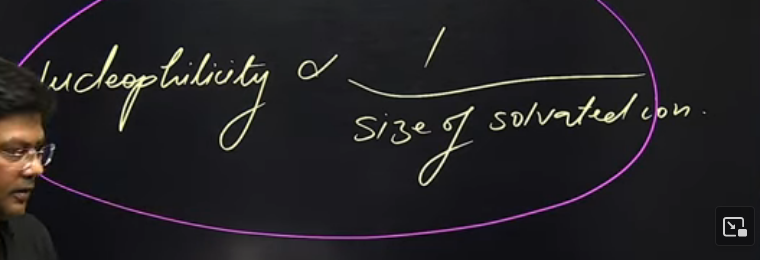 Nucleophilicity ∝ 1
size of solvated ion.